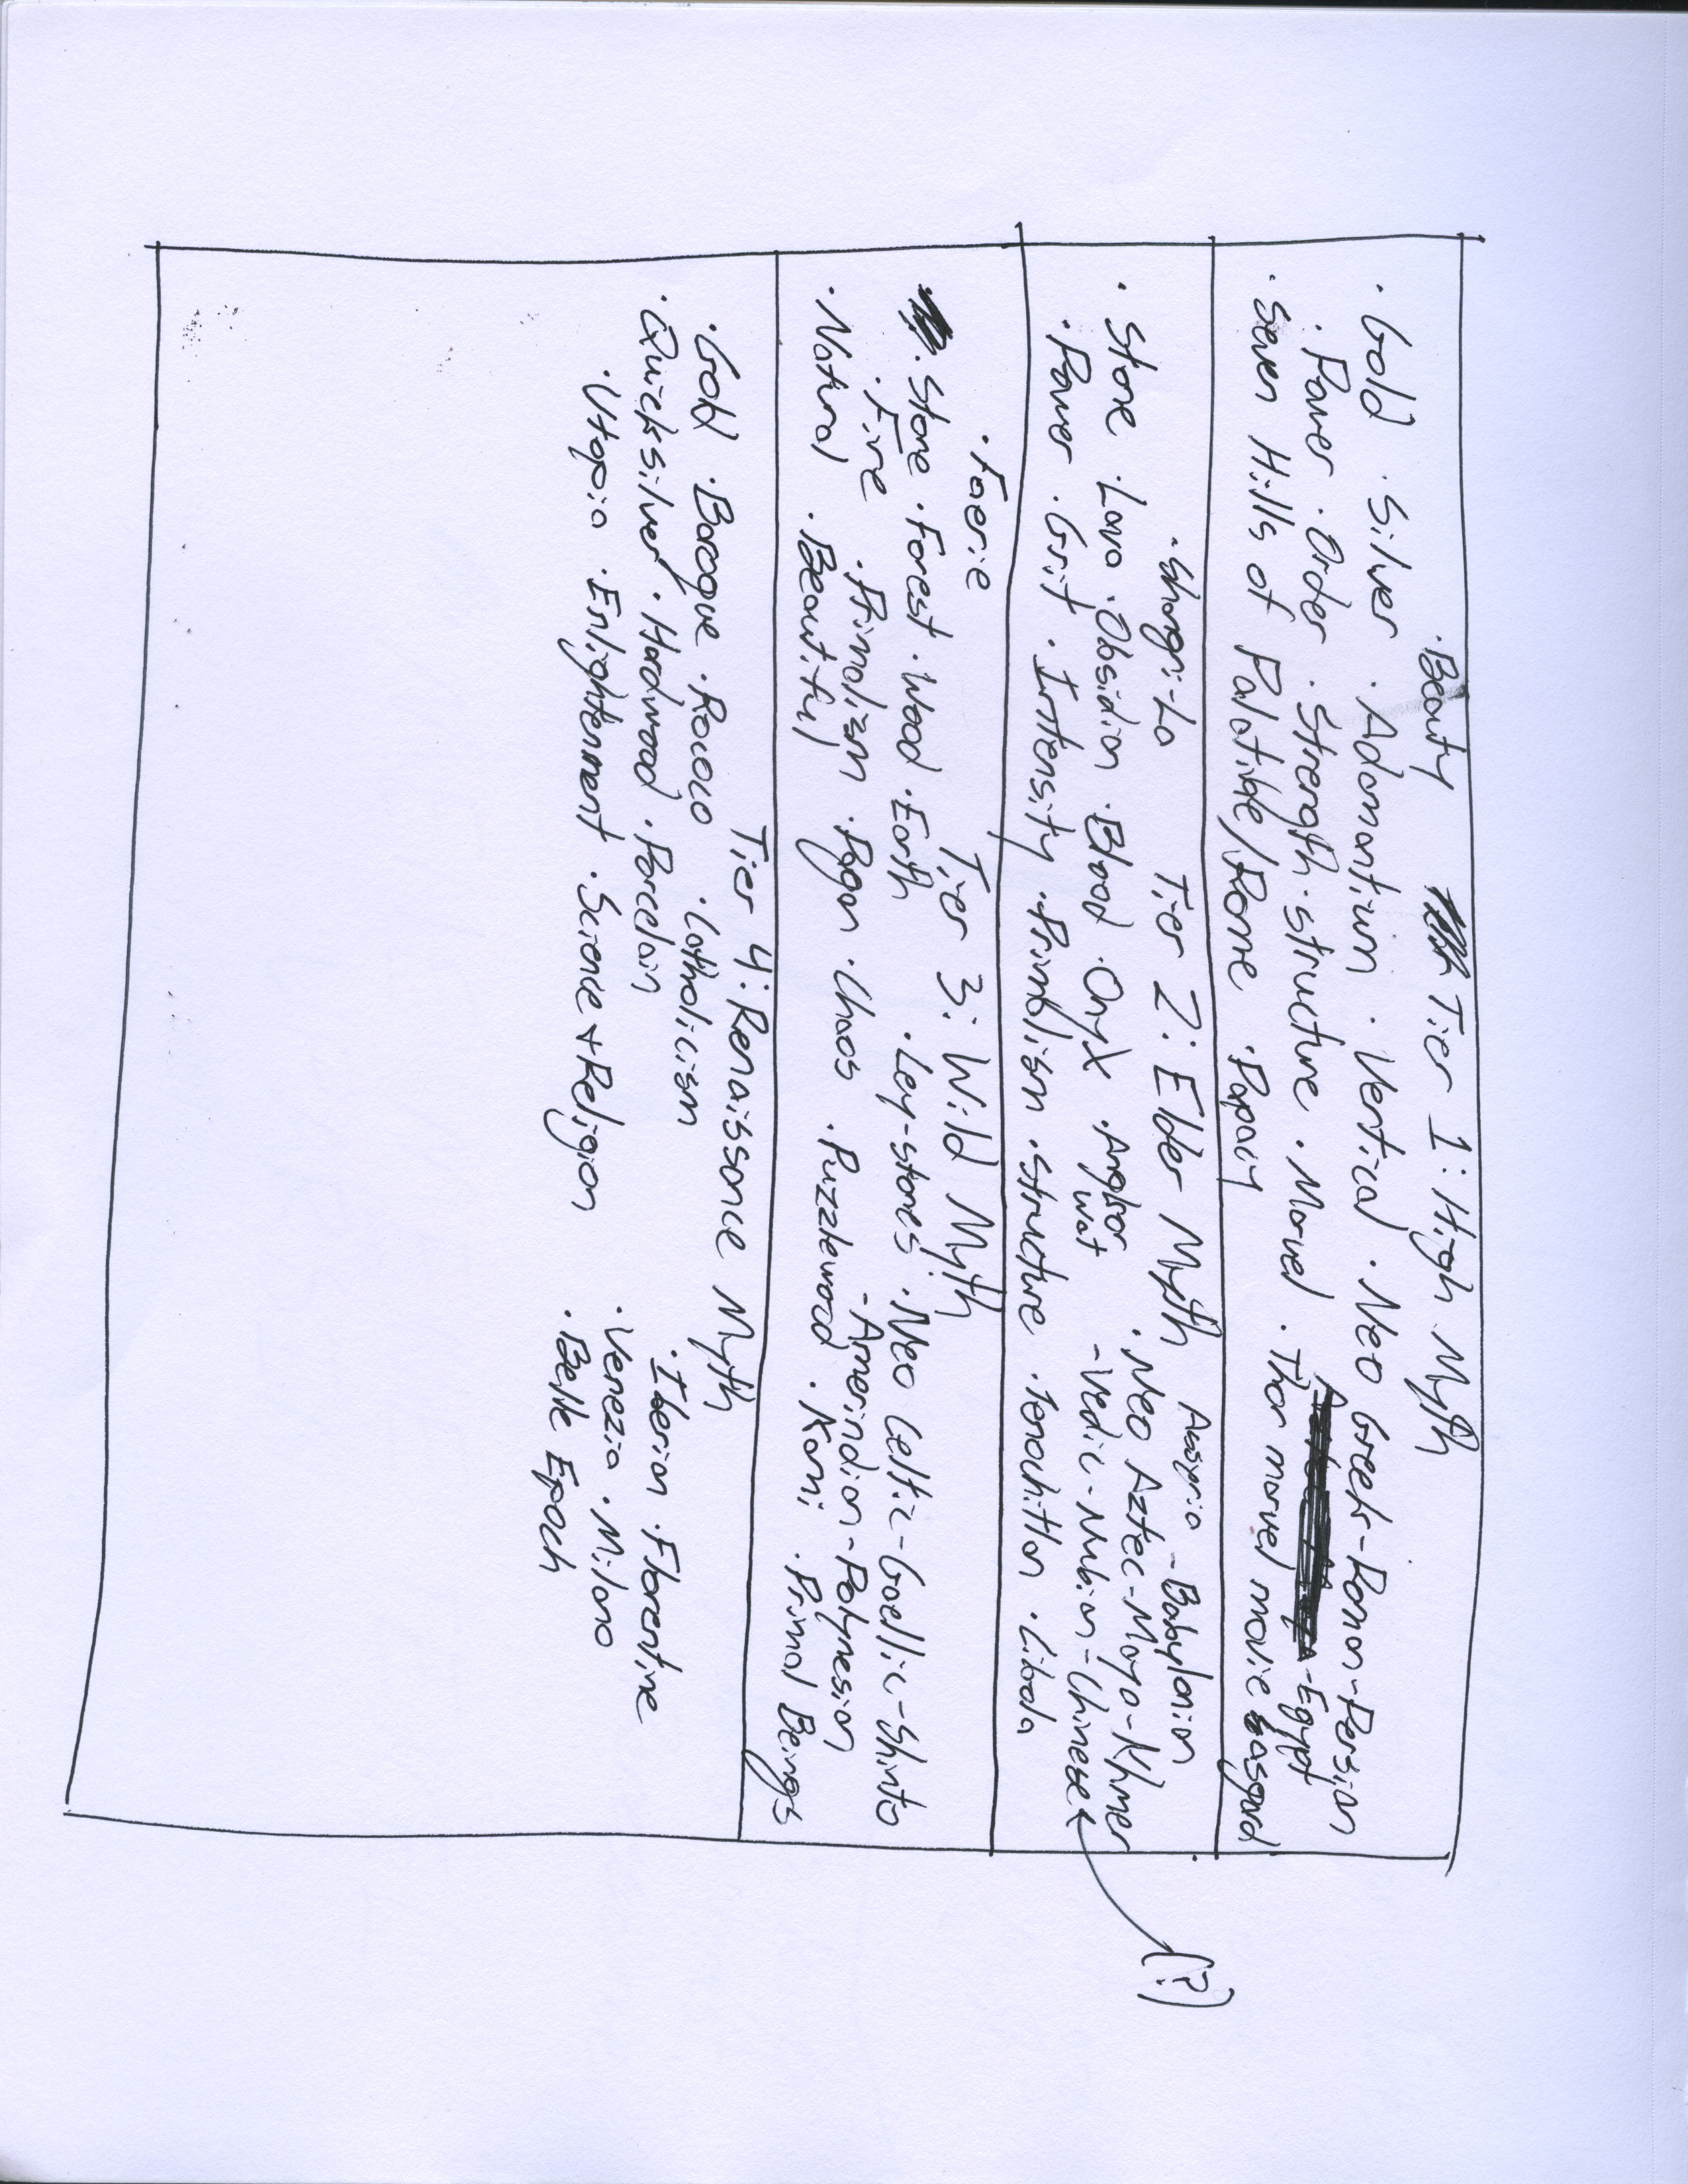 · Beauty Tier 1: High Myth
· Gold · Silver · Adamantium · Vertical · Neo Greek-Roman-Persian
· Power · Order · Strength · structure · Marvel -Egypt
· Seven Hills of Palatine/Rome · Thor marvel movie asgard
· Shangri-La Tier 2: Elder Myth Assyria -Babylonian
· Stone · Lava · Obsidian · Blood · Onyx · Angkor wat · Neo Aztec-Maya-Khmer
-Vedic-Nubian-Chinese (?)
· Power · Grit · Intensity · Primalism · structure · Tenochitlan · Cibala
· Faerie Tier 3: Wild Myth
· Stone · Forest · Wood · Earth · Ley-stones · Neo Celtic-Gaellic-Shinto
· Fire · Primalism · Pagan · Chaos -Amerindian-Polynesian
· Natural · Beautiful · Puzzlewood · Kami · Primal Beings
Tier 4: Renaissance Myth
· Gold · Baroque · Rococo · Catholicism · Iberian · Florentine
· Quicksilver · Hardwood · Porcelain · Venezia · Milano
· Utopia · Enlightenment · Science + Religion · Belle Epoch